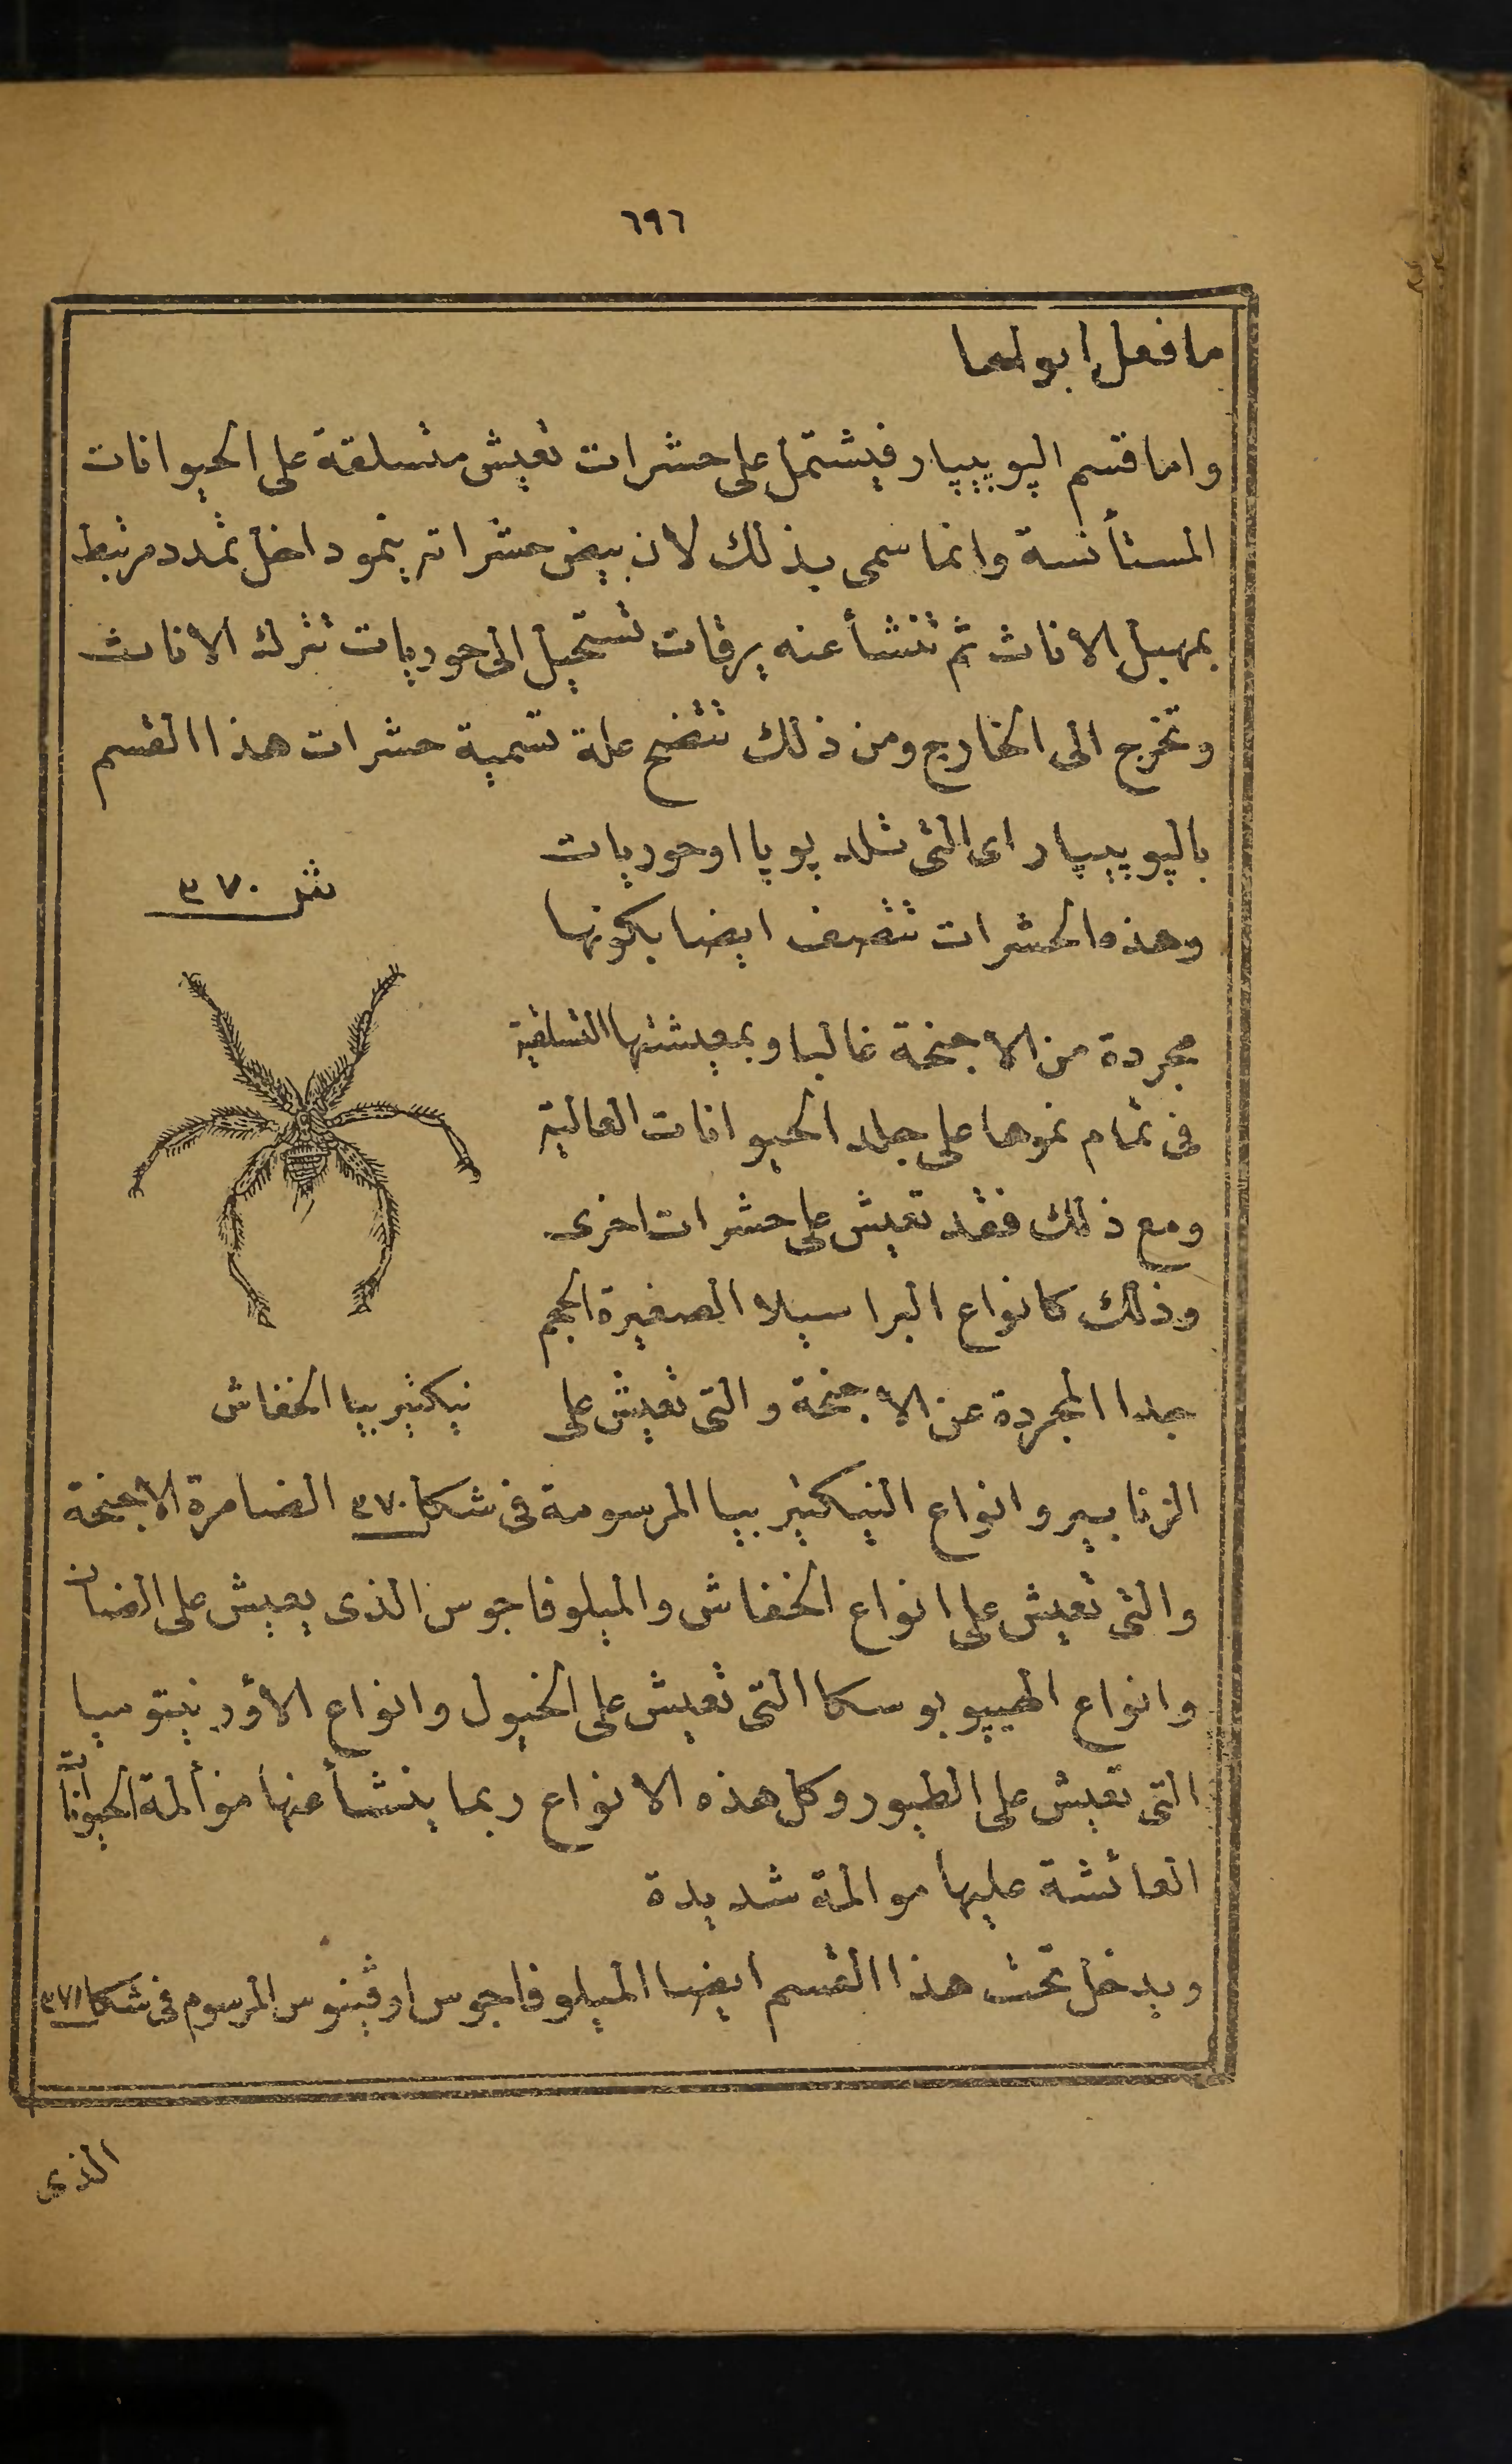 ٦٩٦
ما فعل ابولهما
واما قسم الپوپيپار فيشتمل على حشرات تعيش متسلقة على الحيوانات
المستأنسة وانما سمى بذلك لان بيض حشراته ينمو داخل تمدد مرتبط
بمهبل الاناث ثم تنشأ عنه يرقات تستحيل الى حوريات تترك الاناث
وتخرج الى الخارج ومن ذلك تتضح علة تسمية حشرات هذا القسم
بالپوپيپار اى التى تلد پوپا او حوريات
وهذه الحشرات تتصف ايضا بكونها
مجردة من الاجنحة غالبا وبمعيشتها التسلقية
فى تمام نموها على جلد الحيوانات العالية
ومع ذلك فقد تعيش على حشرات اخرى
وذلك كانواع البراسيلا الصغيرة الحجم
جدا المجردة عن الاجنحة والتى تعيش على
شكل ٣٧٠
نيكتيريبيا الخفاش
الزنابير وانواع النيكتيريبيا المرسومة فى شكل ٣٧٠ الضامرة الاجنحة
والتى تعيش على انواع الخفاش والميلوفاجوس الذى يعيش على الضان
وانواع الهيپوبوسكا التى تعيش على الخيول وانواع الاؤرنيتوميا
التى تعيش على الطيور وكل هذه الانواع ربما ينشأ عنها مؤألمة الحيوانات
العائشة عليها موالمة شديدة
ويدخل تحت هذا القسم ايضا الميلوفاجوس اوڤينوس المرسوم فى شكل ٣٧١
الذى